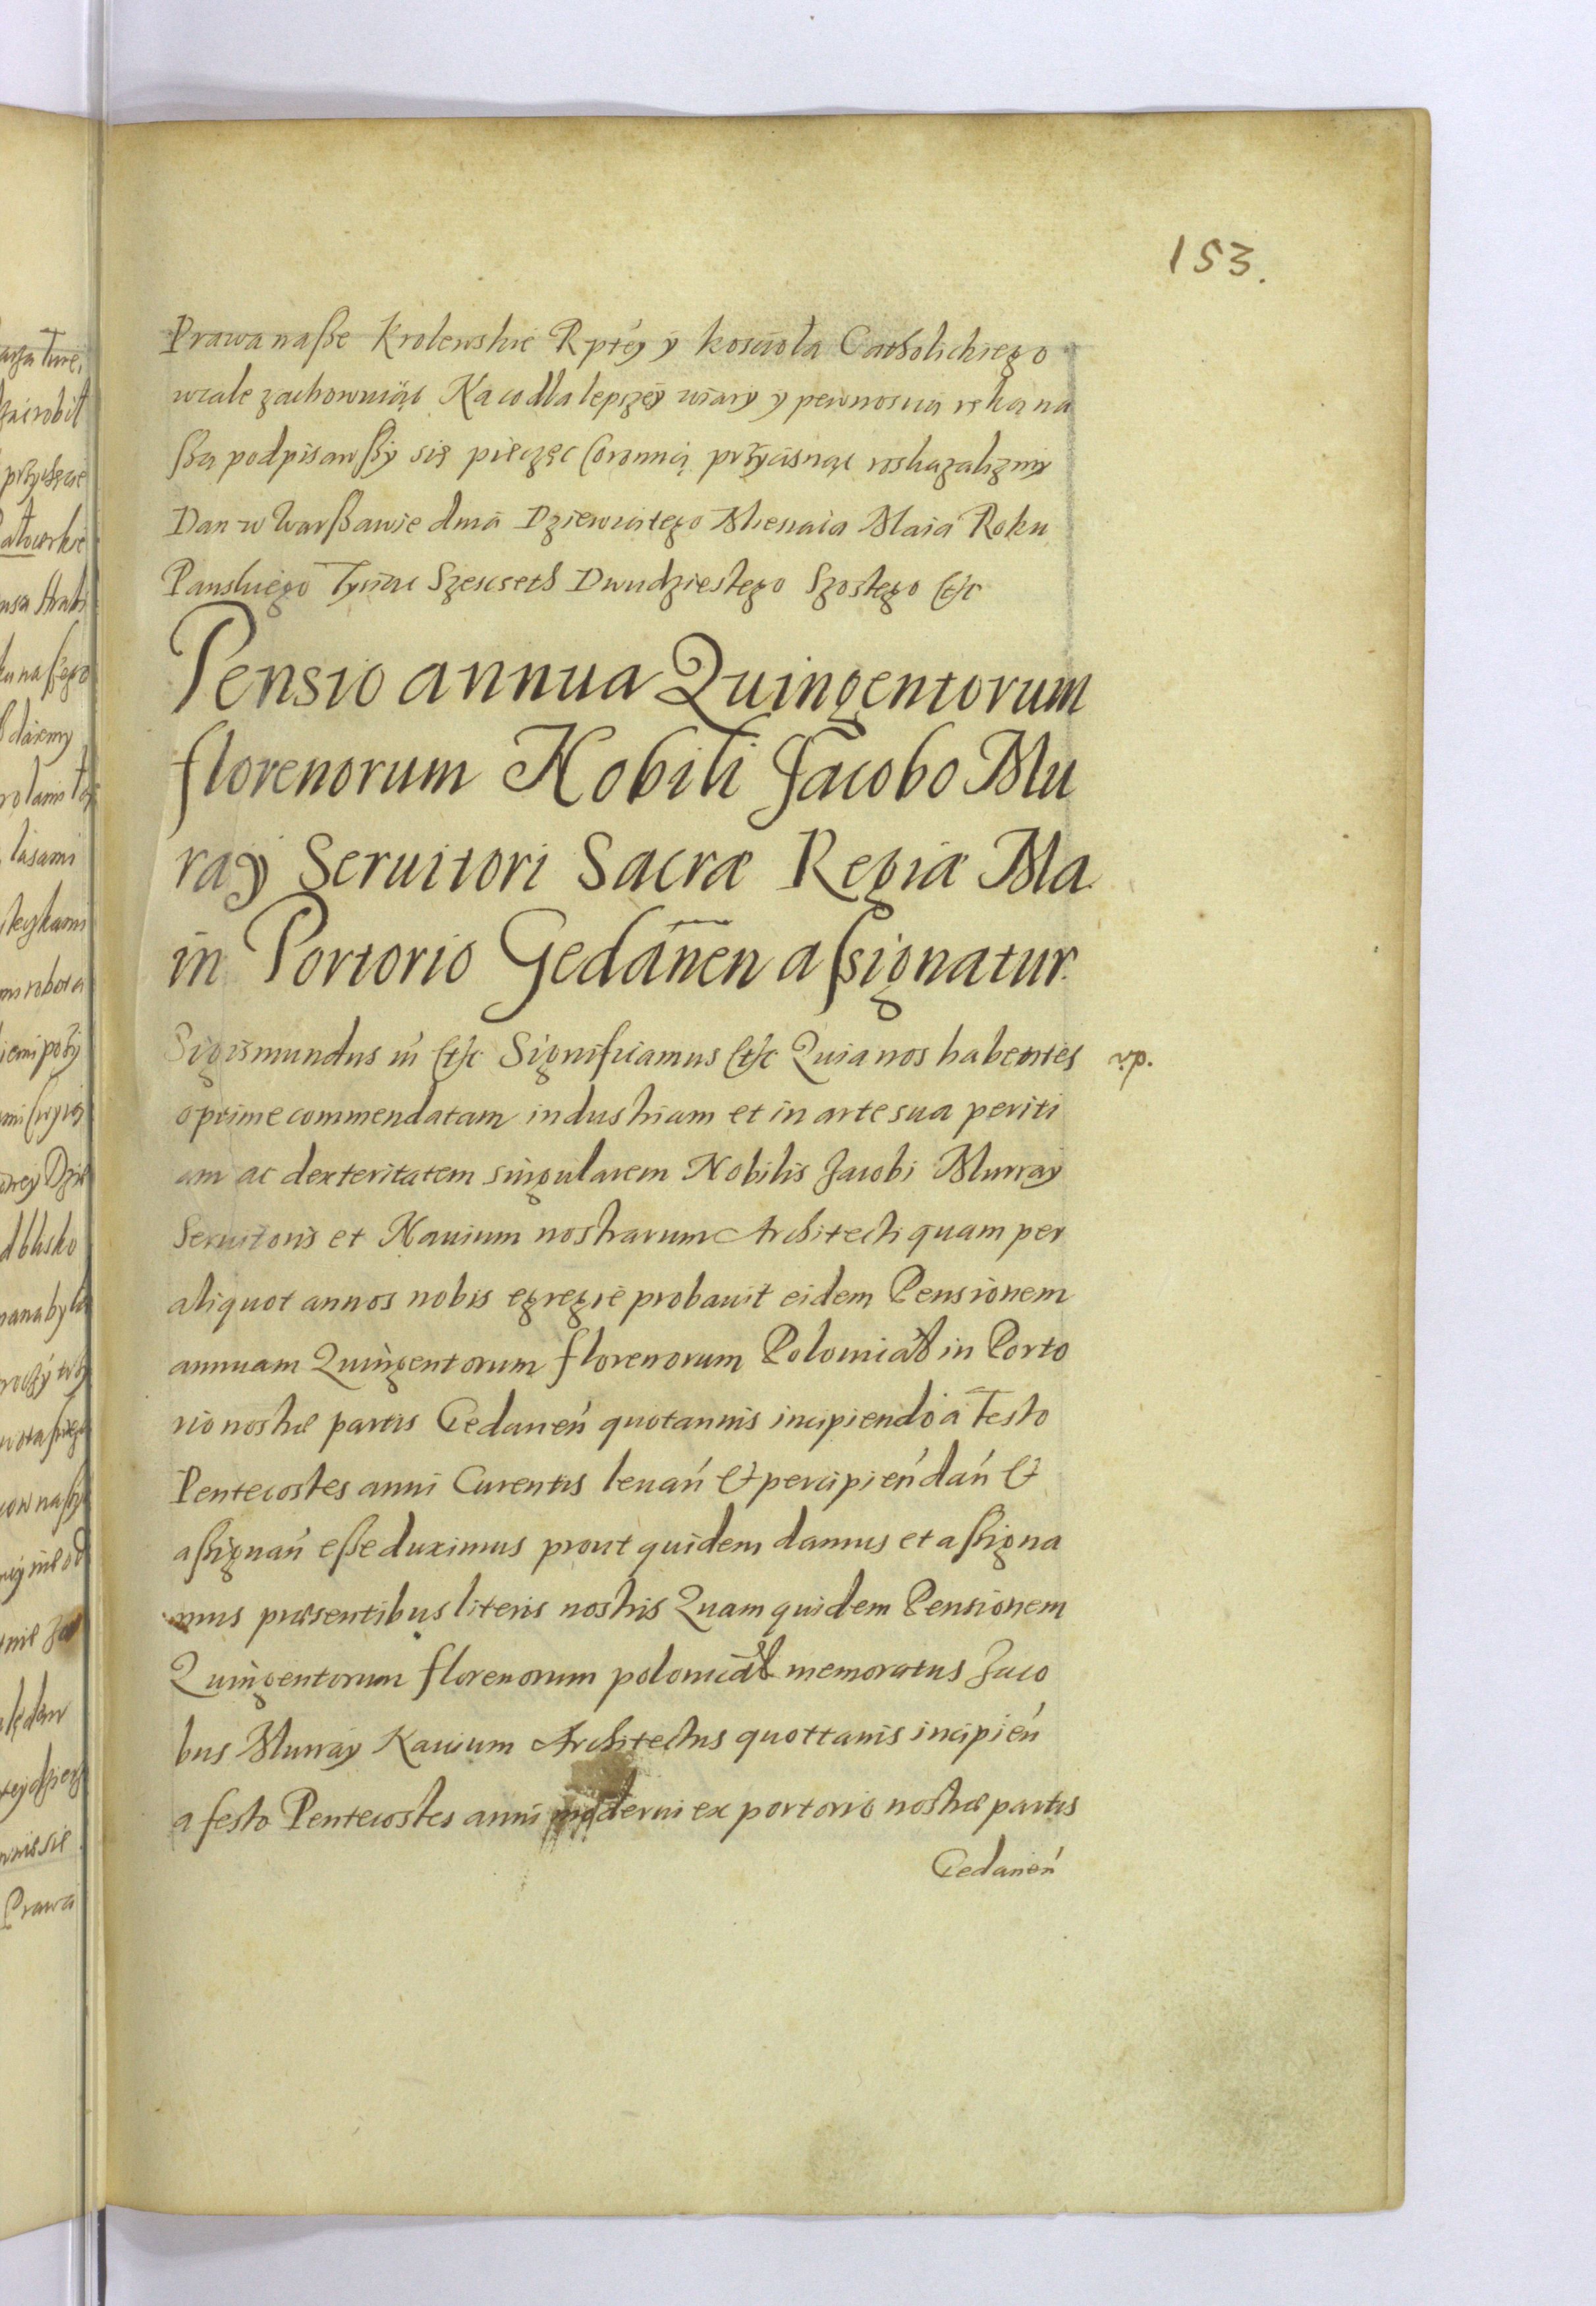 153.
Prawa naſze Krolewskie Rptey y kosciola Catholickiego
wcale zachowuiąc Na co dla lepszey wiary y pewnoscia ręką na
ſzą podpisawſzy się pieczęc Coronną przycisnąc roskazalizmy
Dan w Warſzawie dnia Dziewiątego Miesiaca Maia Roku
Panskiego Tysiac Szescseth Dwudziestego Szostego &c
Pensio annua Quingentorum
florenorum Nobili Jacobo Mu
ray Seruitori Sacræ Regiæ Ma
in Portorio Gedanen aſsignatur.
Sigismundus III &c Significamus &c Quia nos habentes
v.p.
optime commendatam industriam et in arte sua periti
am ac dexteritatem singularem Nobilis Jacobi Murray
Seruitoris et Nauium nostrarum Architecti quam per
aliquot annos nobis egregie probauit eidem Pensionem
annuam Quingentorum florenorum Polonical in Porto
rio nostræ partis Gedanen quotannis incipiendo a Festo
Pentecostes anni Curentis leuan & percipien dan &
aſsignan eſse duximus prout quidem damus et aſsigna
mus præsentibus literis nostris Quam quidem Pensionem
Quingentorum florenorum polonical memoratus Jaco
bus Murray Nauium Architectus quottanis incipien
a festo Pentecostes anni moderni ex portorio nostræ partis
Gedanen